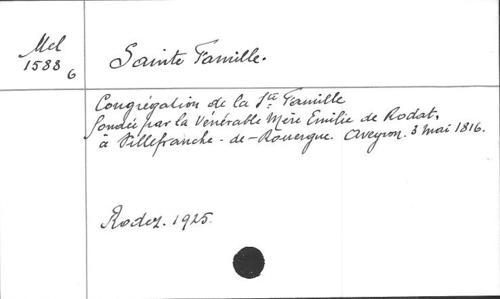 Mel
1588 6
Sainte Famille.
Congrégation de la Ste Famille
fondée par la Vénérable Mère Emilie de Rodat,
à Villefranche-de-Rouergue. Aveyron. 3 mai 1816.
Rodez. 1925.